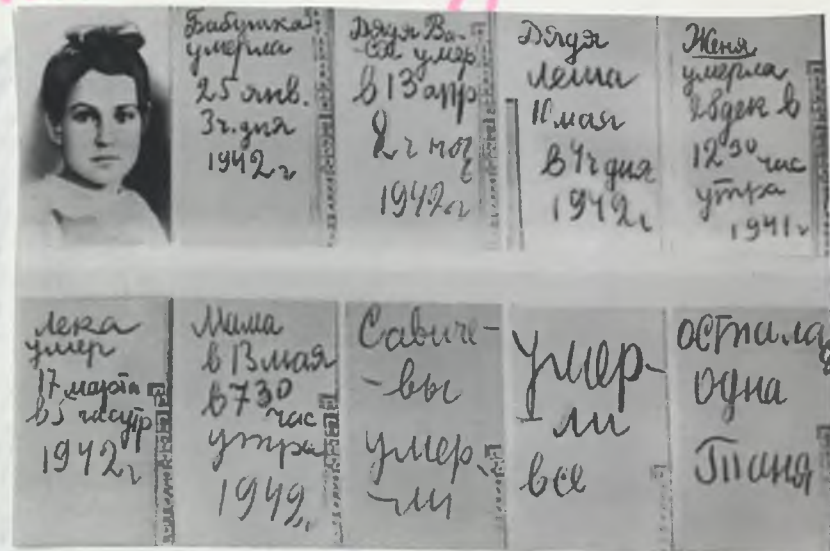 Бабушка
умерла
25 янв.
3ч. дня
1942 г
Дядя Ва-
-ся умер
в 13 апр
2 ч ноч
1942 г
Дядя
Леша
10 мая
в 4ч дня
1942 г
Женя
умерла
28 дек в
12 30 час
утра
1941 г
Лека
умер
17 марта
в 5 час утр
1942 г
Мама
в 13 мая
в 7 30
час
утра
1942 г
Савиче-
-вы
умер-
-ли
умер-
-ли
все
осталась
одна
Таня